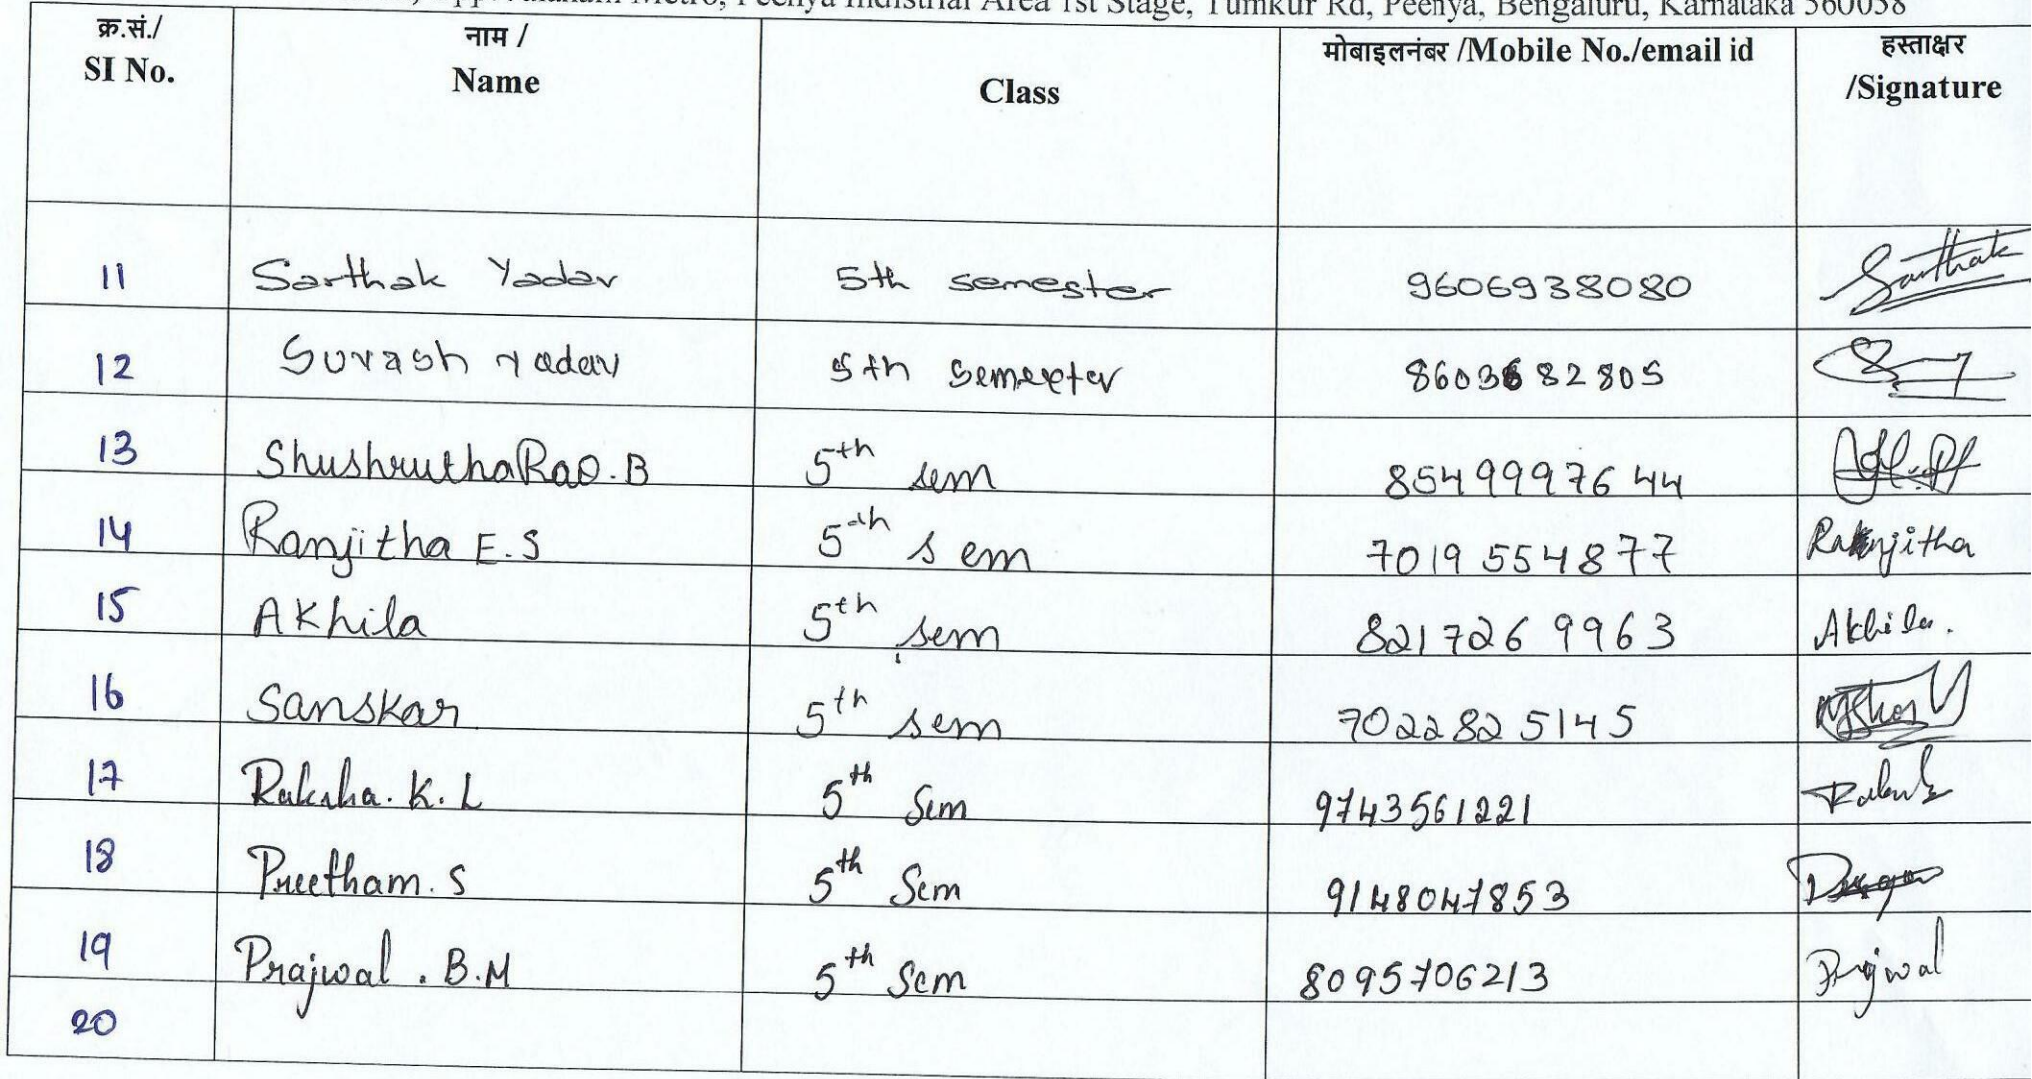 Metro, Peenya Indistrial Area 1st Stage, Tumkur Rd, Peenya, Bengaluru, Karnataka 560058
क्र.सं./ SI No. नाम / Name Class मोबाइलनंबर /Mobile No./email id हस्ताक्षर /Signature
11 Sarthak Yadav 5th semester 9606938080 Sarthak
12 Suvash Yadav 5th semester 8603682805
13 ShushruthaRao.B 5th sem 8549997644
14 Ranjitha E.S 5th sem 7019554877 Ranjitha
15 Akhila 5th sem 8217269963 Akhila.
16 Sanskar 5th sem 7022825145
17 Raksha.K.L 5th Sem 9743561221
18 Preetham.S 5th Sem 9148047853
19 Prajwal.B.M 5th Sem 8095706213 Prajwal
20